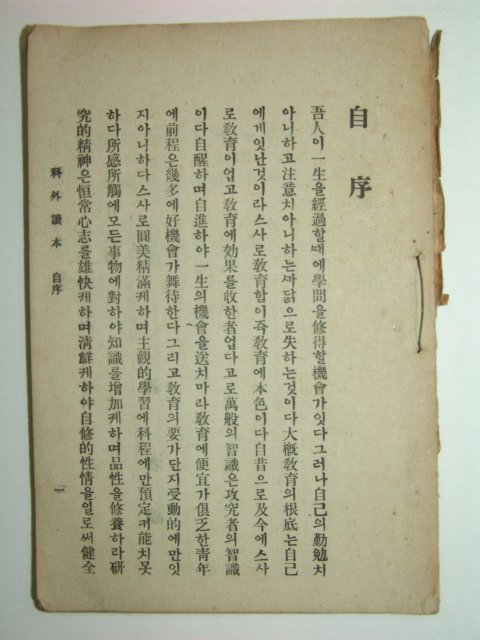 自序
吾人이一生을經過할때에學問을修得할機會가잇다그러나自己의勤勉치
아니하고注意치아니하는까닭으로失하는것이다大槪敎育의根底는自己
에게잇난것이라스사로敎育함이즉敎育에本色이다自昔으로及今에스사
로敎育이업고敎育에効果를收한者업다고로萬般의智識은攻究者의智識
이다自醒하며自進하야一生의機會을送치마라敎育에便宜가俱乏한靑年
에前程은幾多에好機會가舞待한다그리고敎育의要가단지受動的에만잇
지아니하다스사로圓美精滿케하며主觀的學習에科程에만預定키能치못
하다所感所觸에모든事物에對하야知識를增加케하며品性을修養하라硏
究的精神은恒常心志를雄快케하며淸鮮케하야自修的性情을일로써健全
科外讀本 自序
一